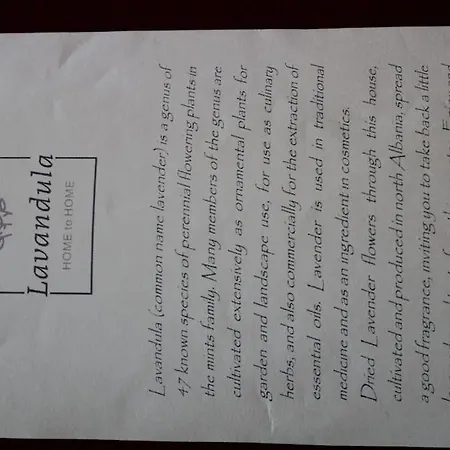 Lavandula
HOME to HOME
Lavandula (common name lavender) is a genus of
47 known species of perennial flowering plants in
the mints family. Many members of the genus are
cultivated extensively as ornamental plants for
garden and landscape use, for use as culinary
herbs, and also commercially for the extraction of
essential oils. Lavender is used in traditional
medicine and as an ingredient in cosmetics.
Dried Lavender flowers through this house,
cultivated and produced in north Albania, spread
a good fragrance, inviting you to take back a little